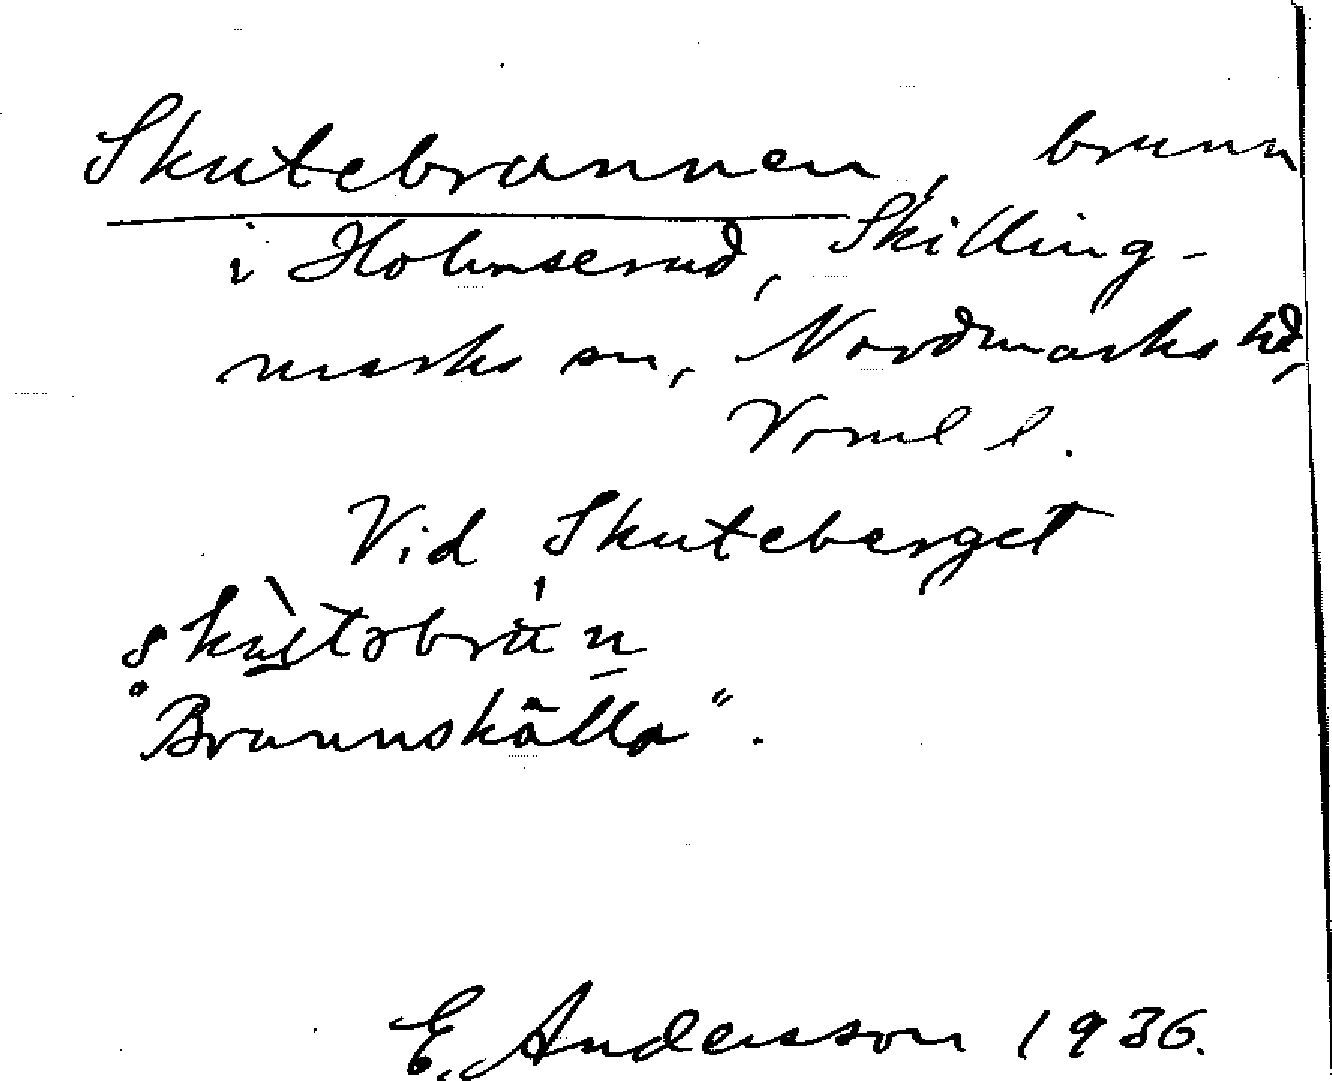 Skutebrannen, brunn
i Holmserud, Skilling-
marks sn, Nordmarks hd,
Vrml l.
Vid Skuteberget
"Brannskälla".
E. Andersson 1936.